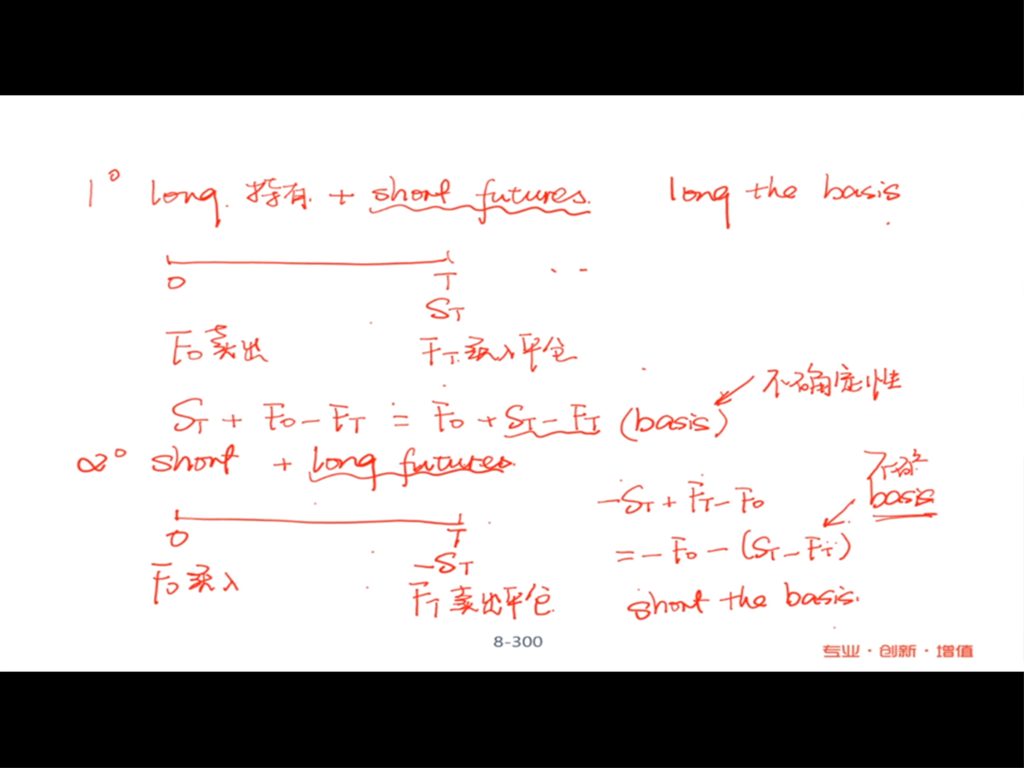 1° long 持有 + short futures. long the basis
0 T
S_T
F_0 卖出 F_T 买入平仓
不确定性
S_T + F_0 - F_T = F_0 + S_T - F_T (basis)
2° short + long futures.
不确定 basis
-S_T + F_T - F_0
0 T
-S_T
= -F_0 - (S_T - F_T)
F_0 买入 F_T 卖出平仓
short the basis.
8-300
专业·创新·增值